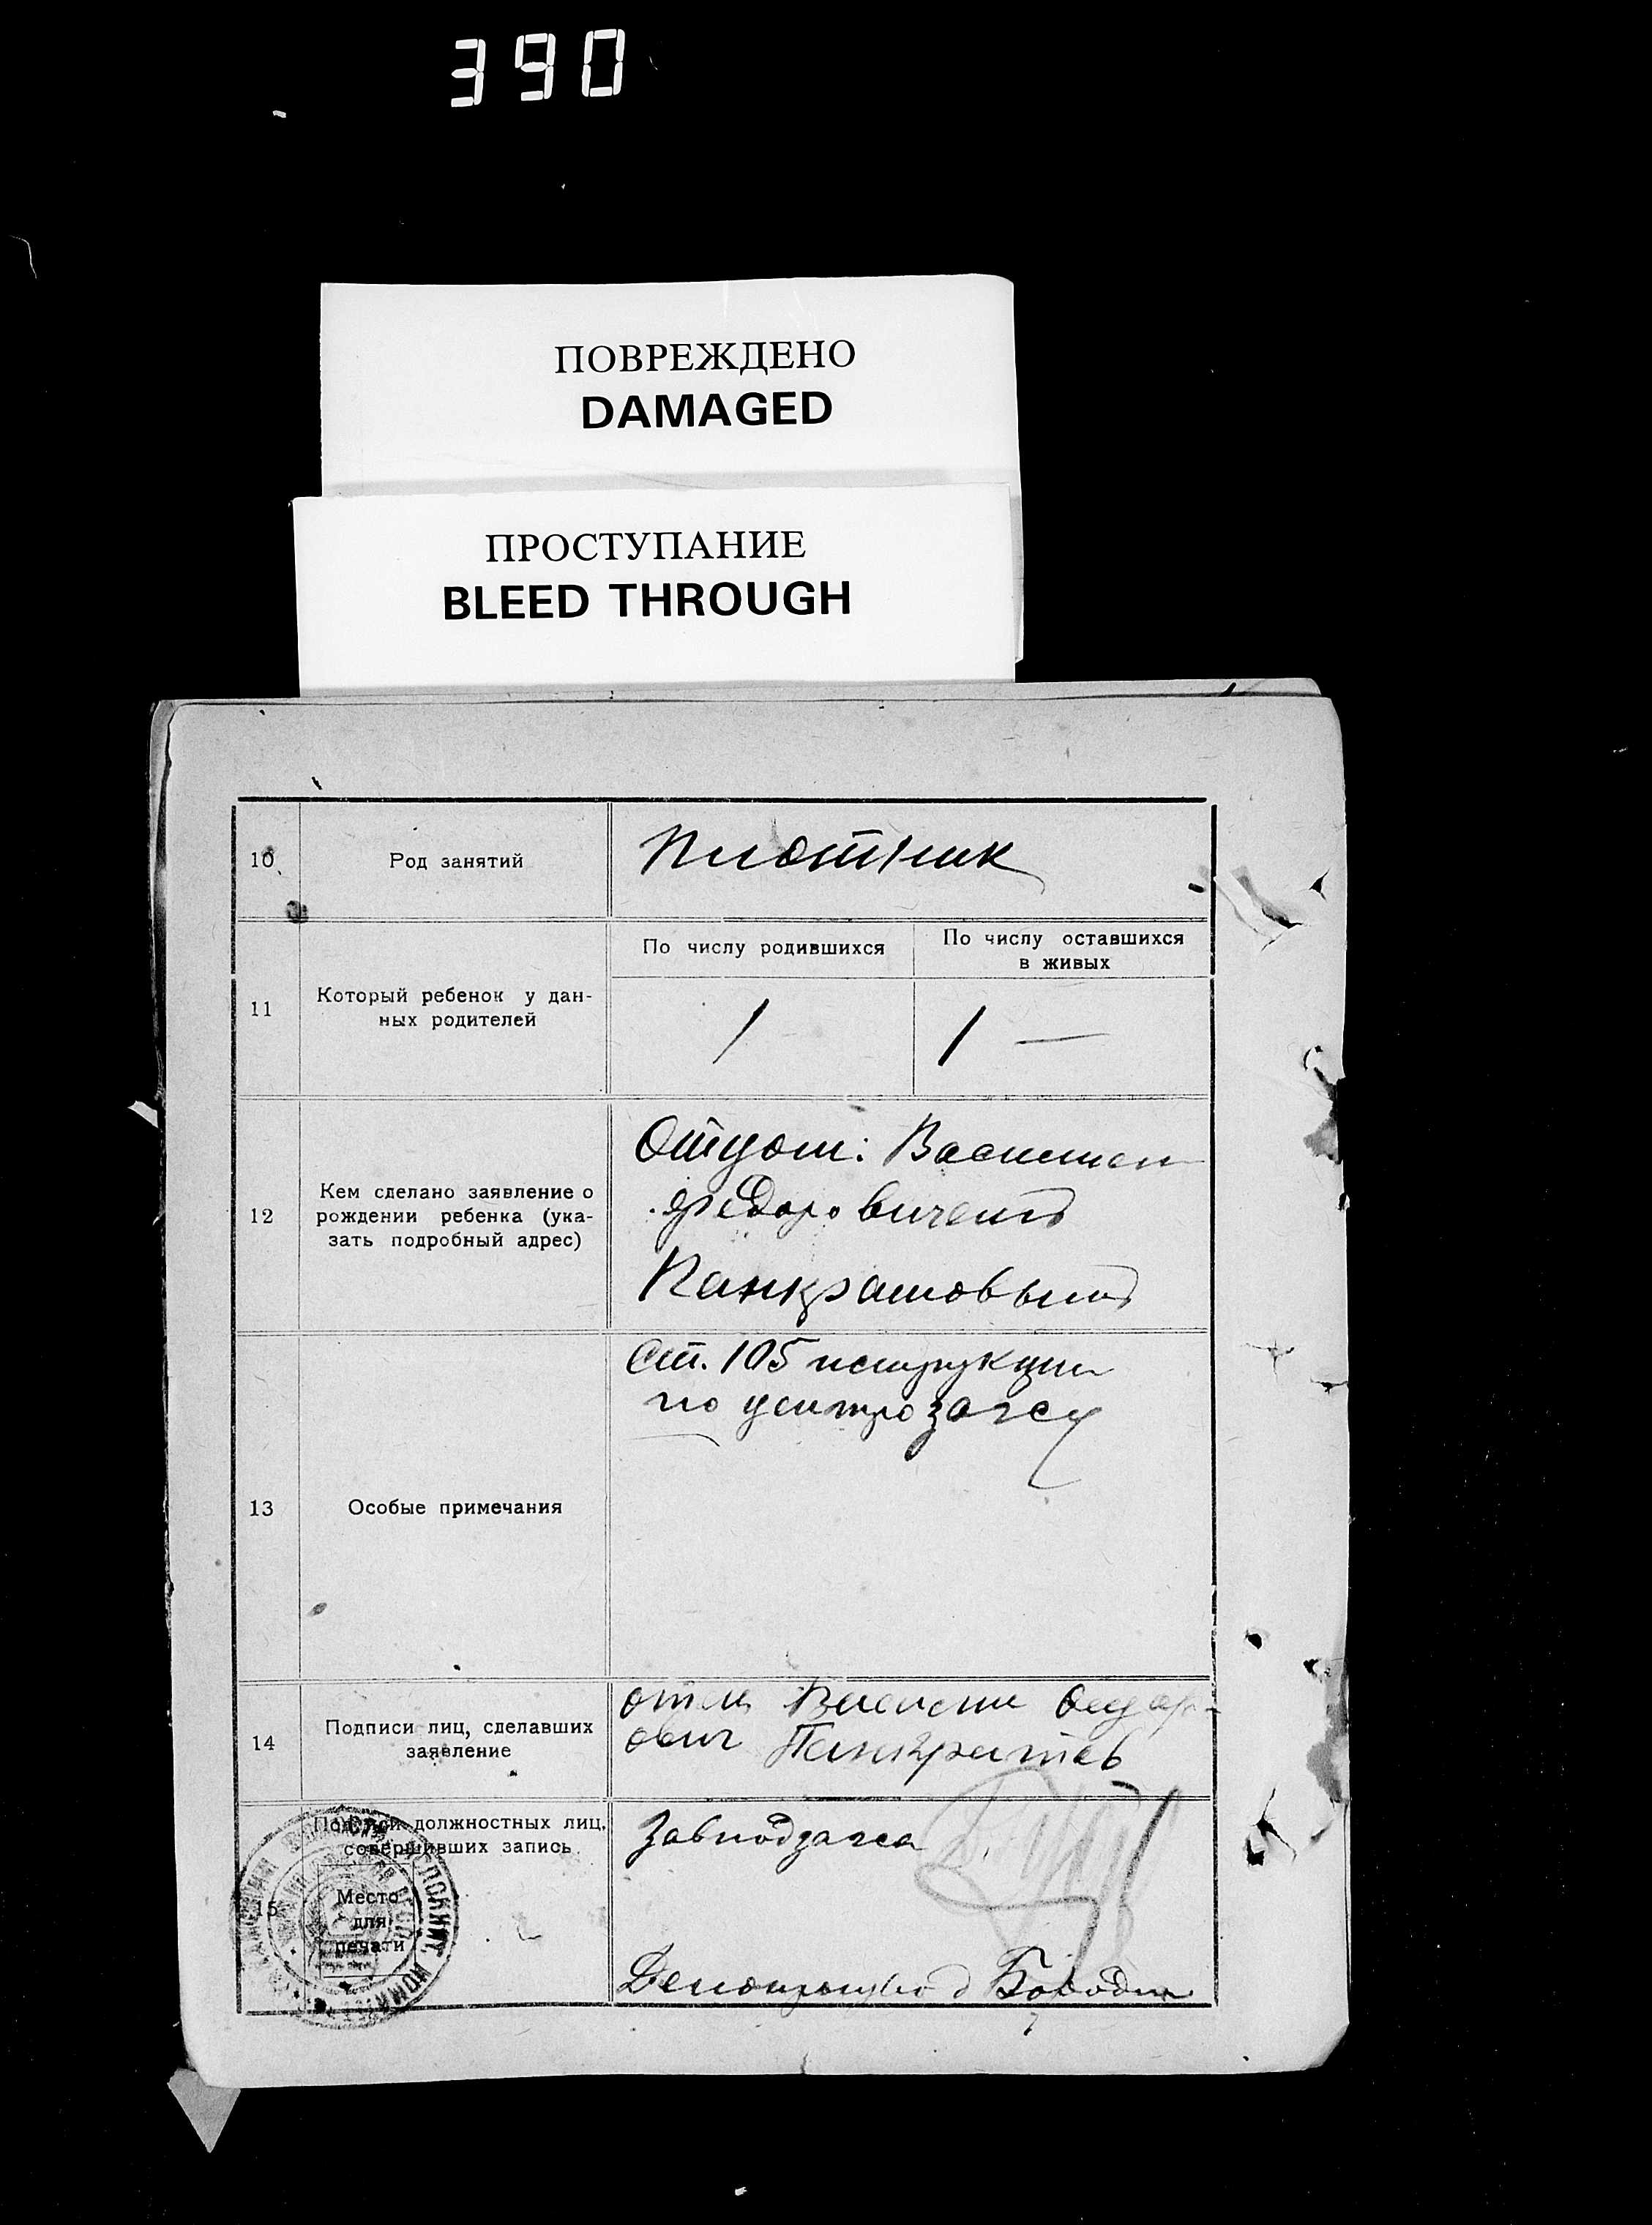 390
ПОВРЕЖДЕНО
DAMAGED
ПРОСТУПАНИЕ
BLEED THROUGH
10
Род занятий
Плотник
11
Который ребенок у дан-
ных родителей
По числу родившихся
По числу оставшихся
в живых
1
1 —
12
Кем сделано заявление о
рождении ребенка (ука-
зать подробный адрес)
Отцом: Василием
Федоровичем
Панкратовым
13
Особые примечания
Ст. 105 инструкции
по центрозагсу
14
Подписи лиц, сделавших
заявление
отец Василий
ович Панкратов
15
Подписи должностных лиц,
совершивших запись
Место
для
печати
Завподзагса
Делопроизвод Бородин